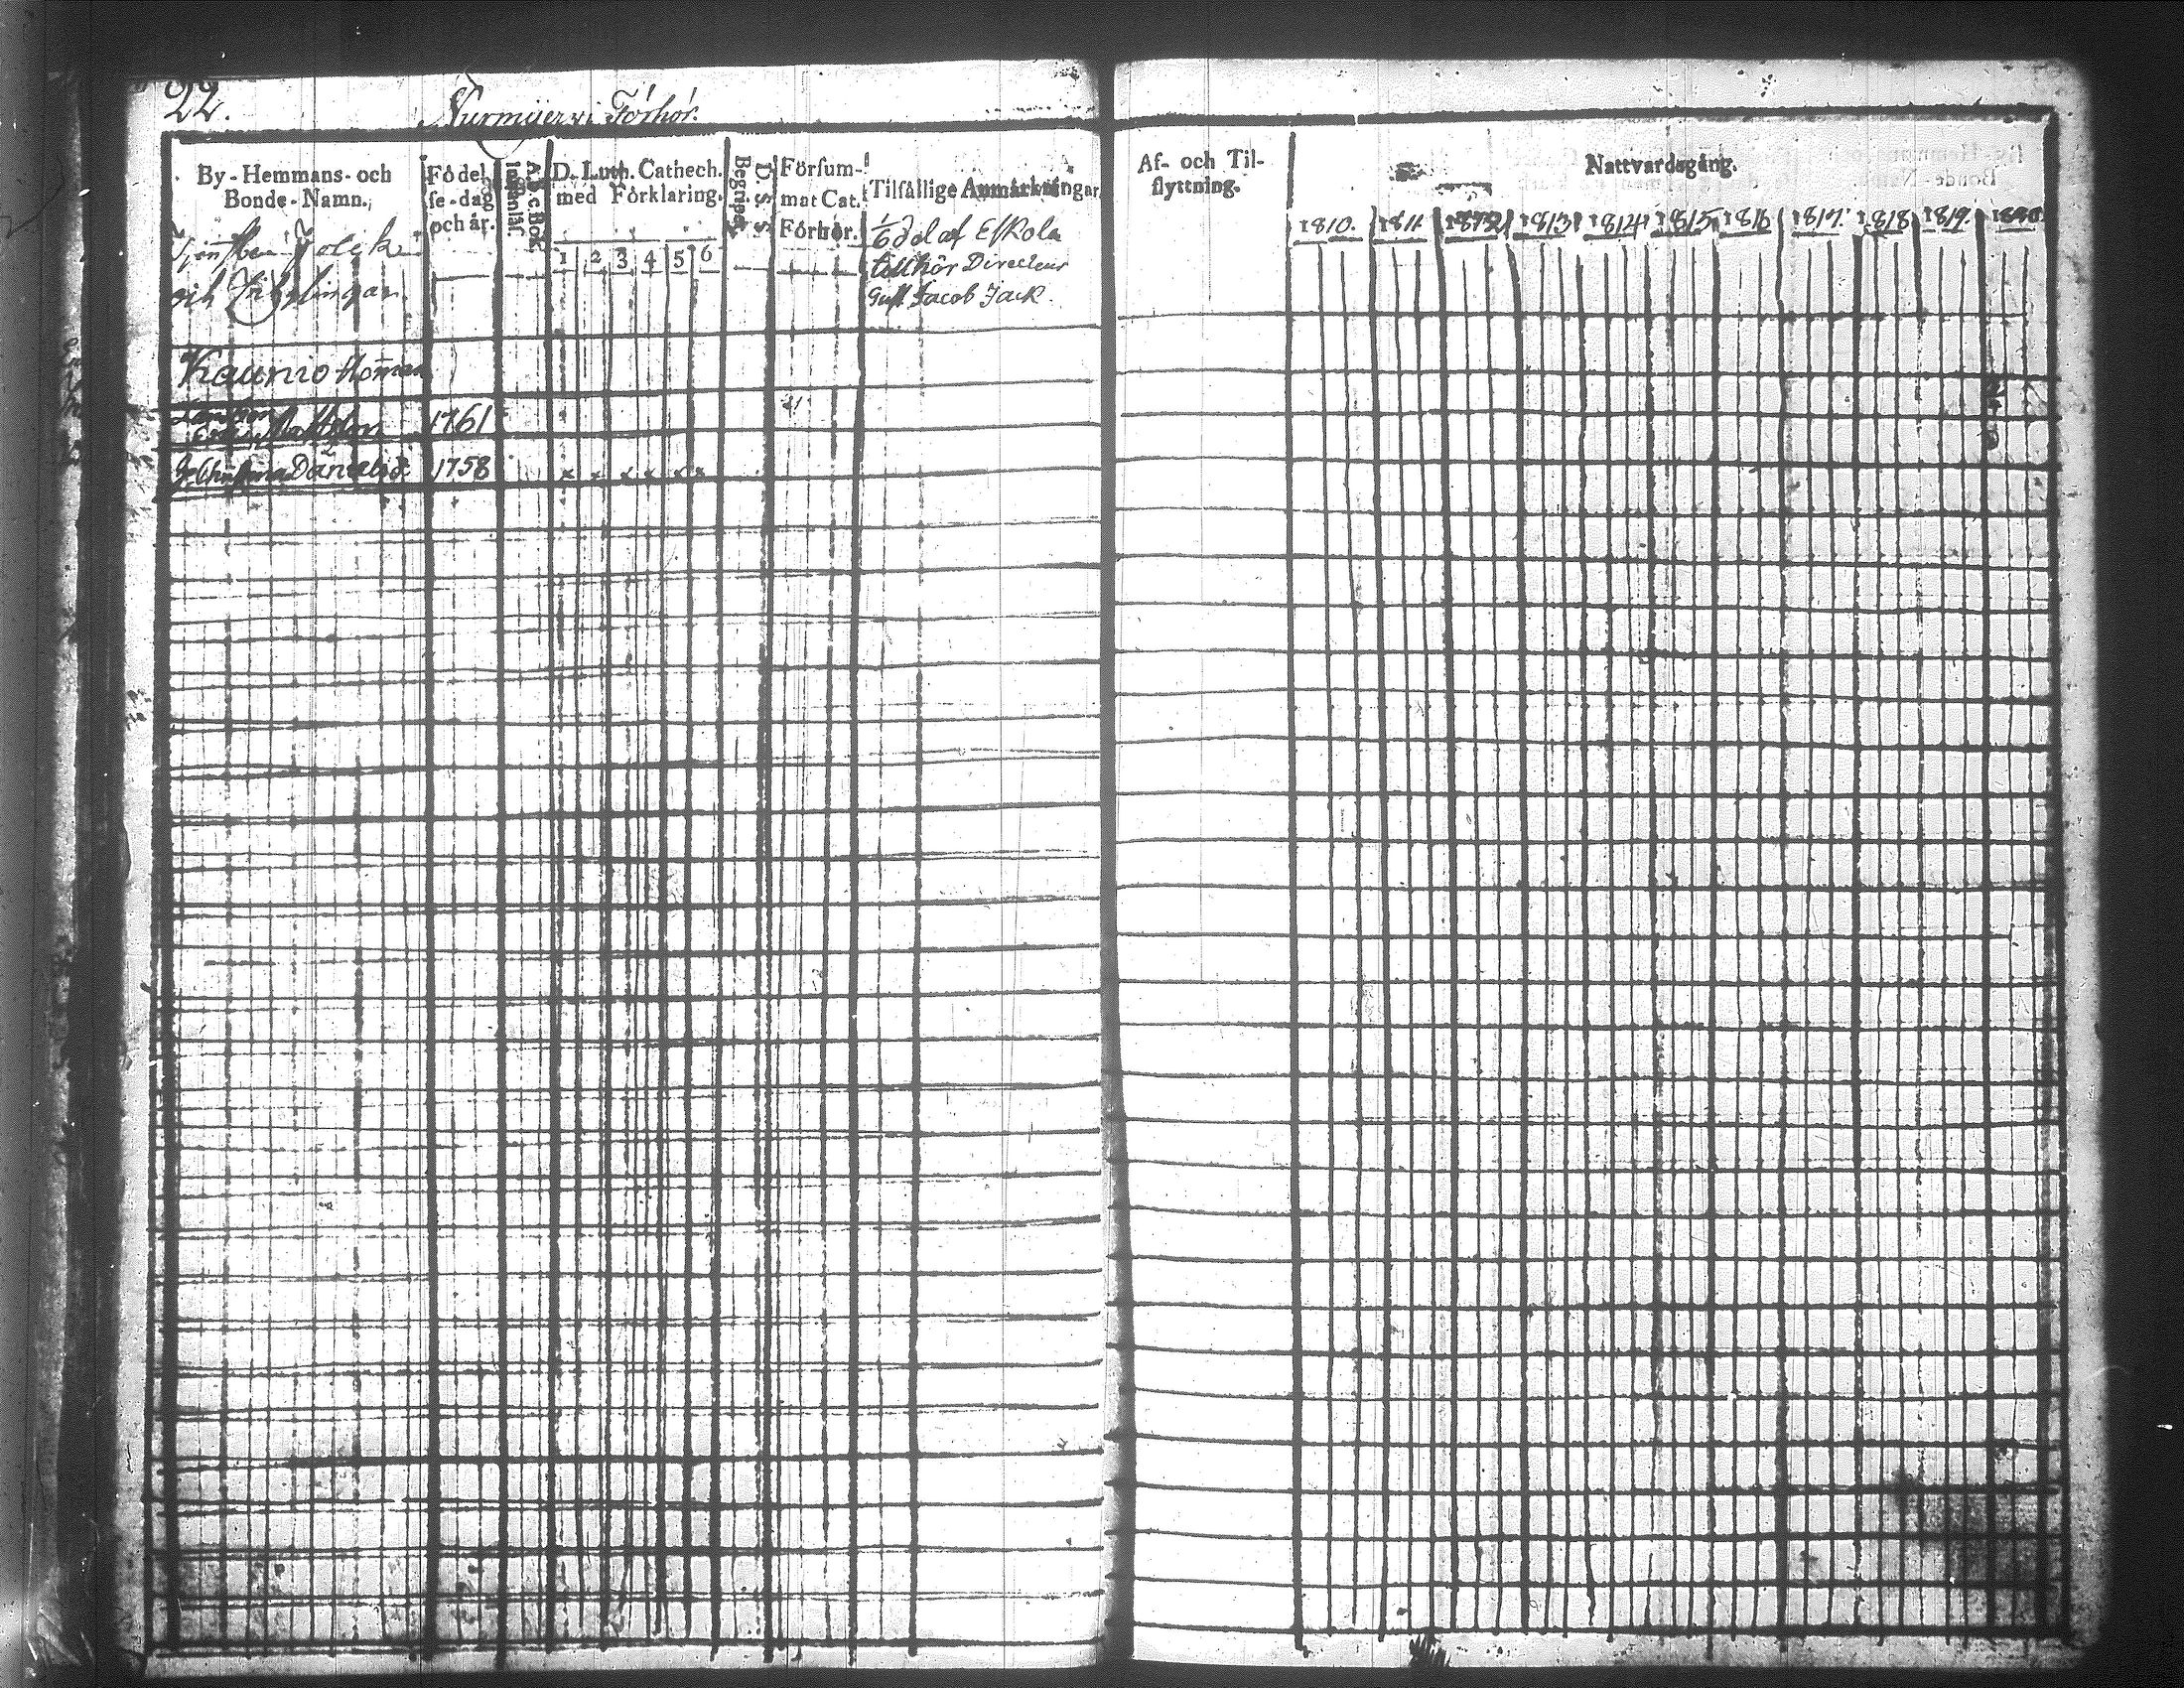 22.
Nurmijervi Förhör.
By-Hemmans- och
Bonde-Namn.
Födel-
se-dag
och år.
A.B.C Bok
Innanläs.
D. Luth. Cathech.
med Förklaring.
1 2 3 4 5 6
Begrepet.
D. S. S.
Försum-
mat Cat.
Förhör.
Tilfällige Anmärkningar
folck
och Inhysingar
1/6 del af Eskola
tillhör Directeur
Gust. Jacob Jack.
Kaunio
1761
Danielsd. 1758
x x x x x x
Af- och Til-
flyttning.
Nattvardsgång.
1810. 1811 1812 1813 1814 1815 1816 1817. 1818 1819. 1820